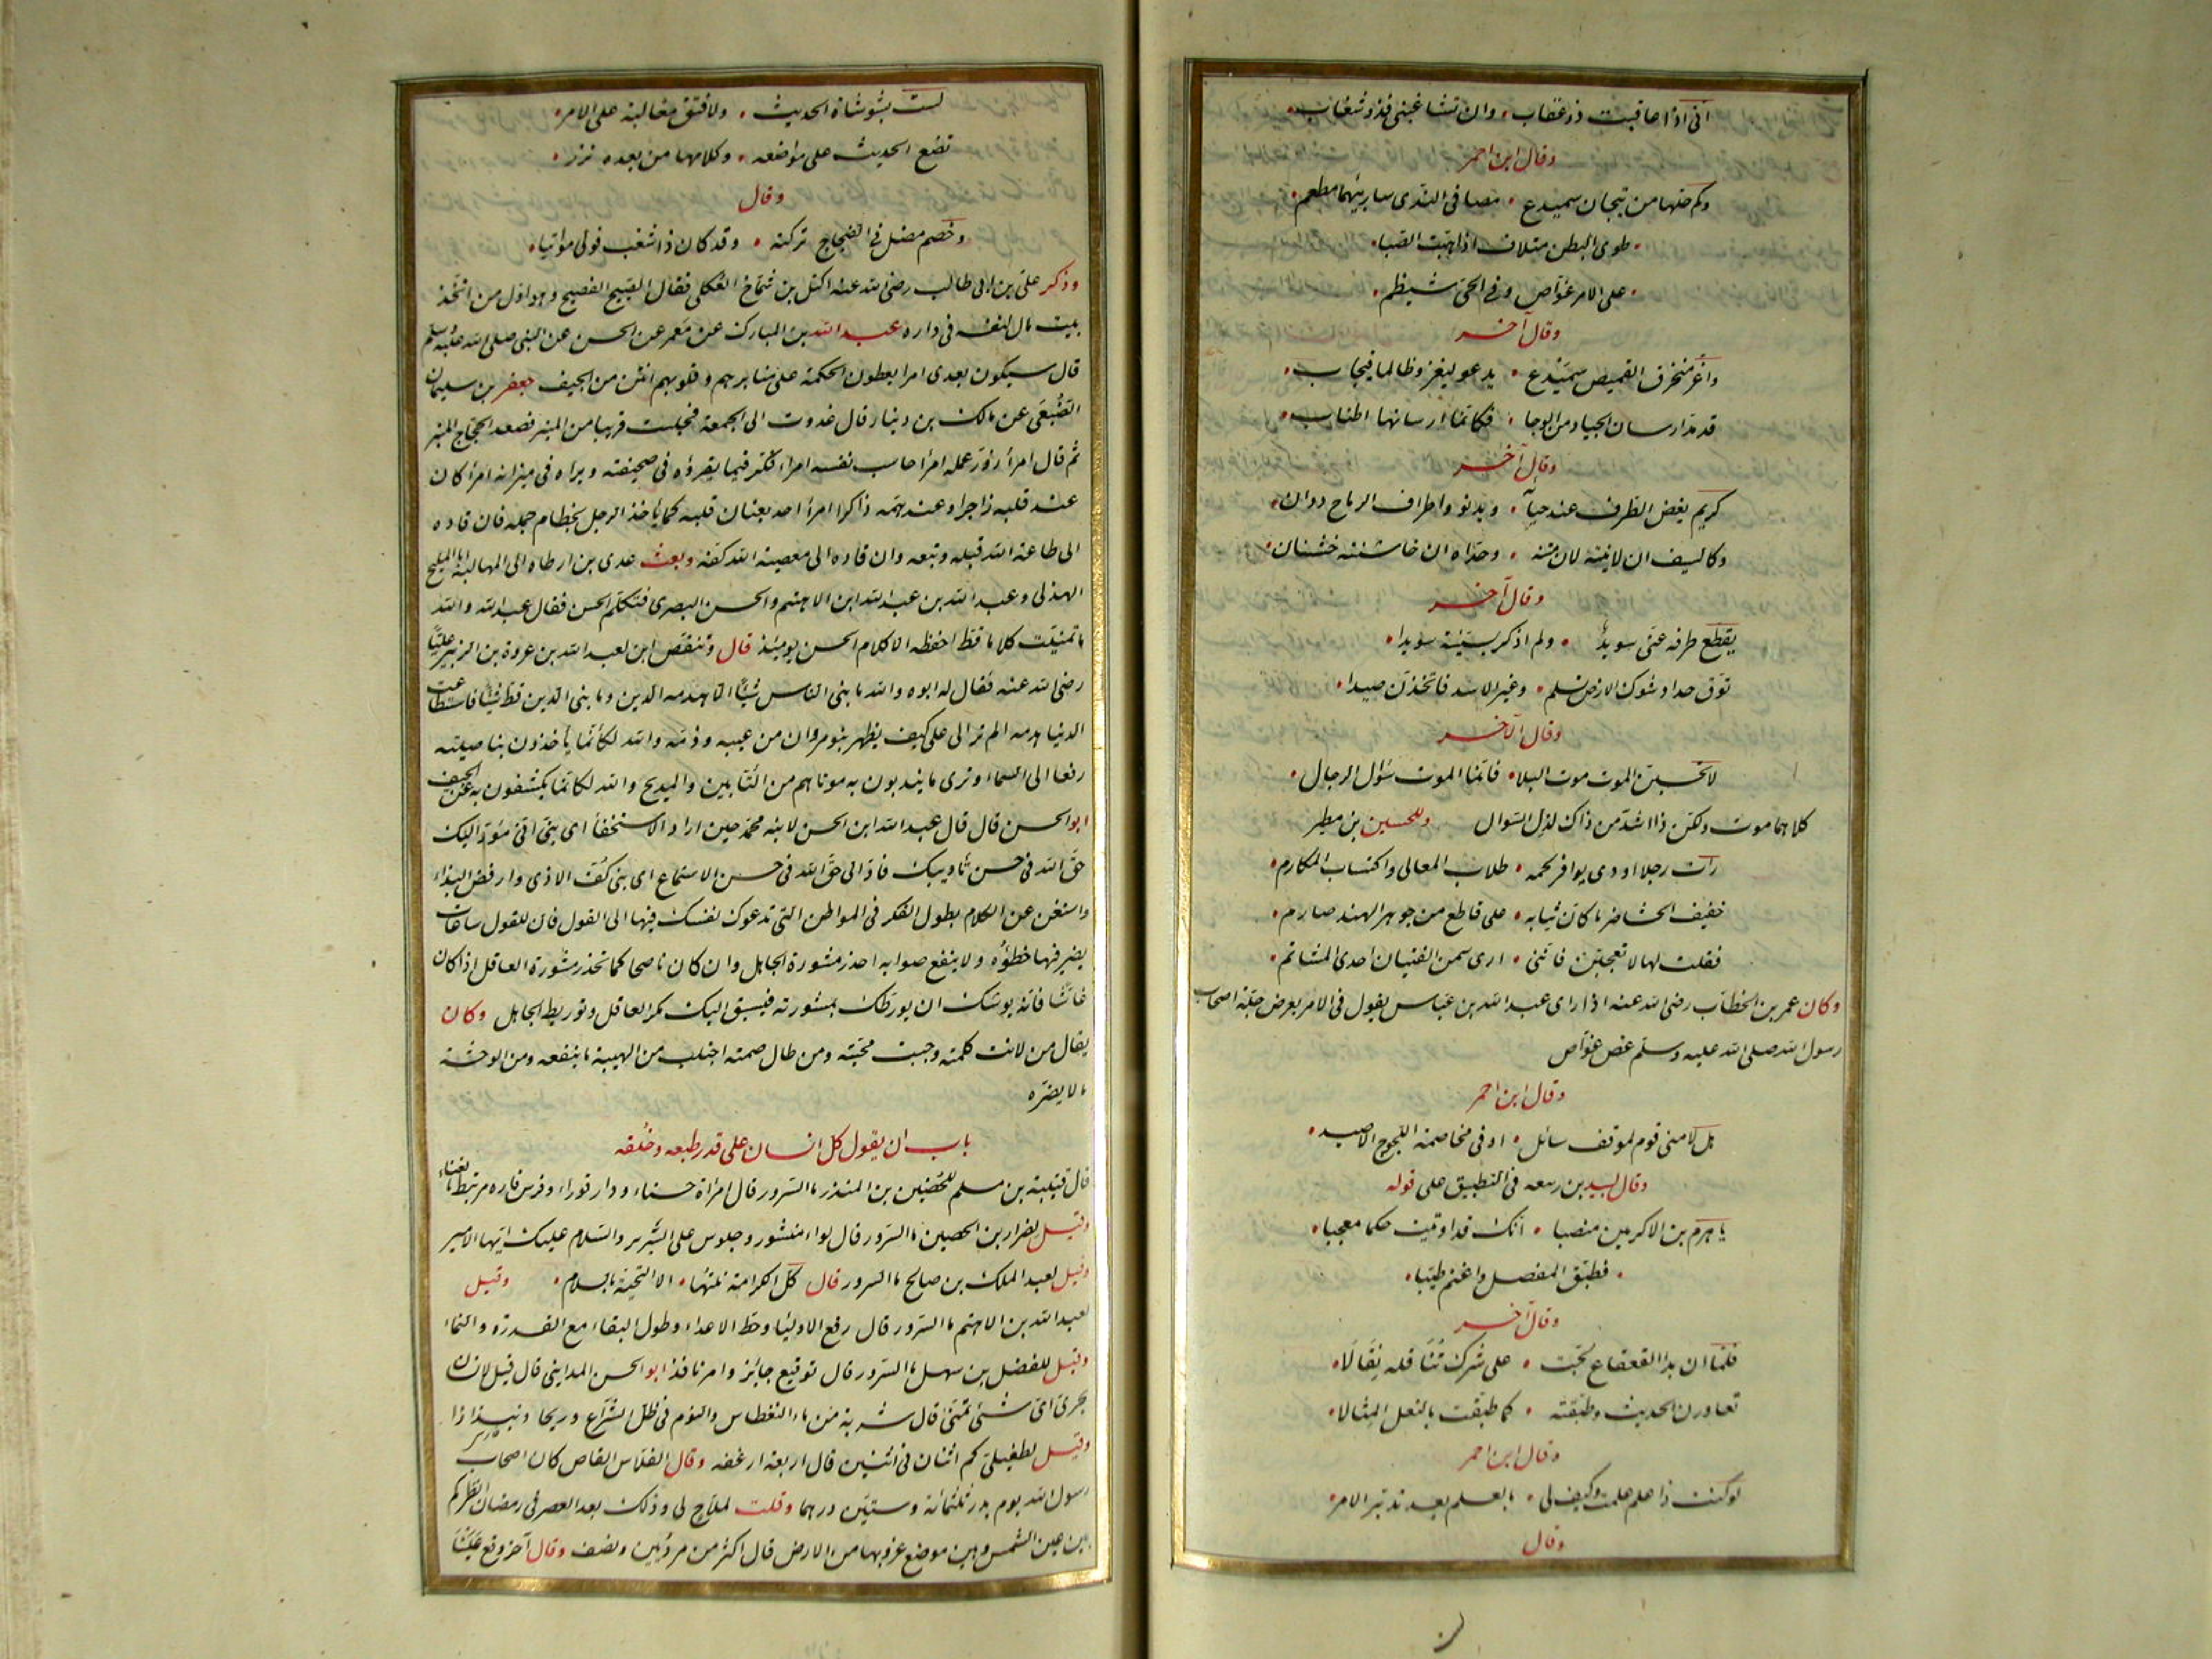 انى اذا عاقبت ذو عقاب • وان تشاغبنى فذو شغاب •
وقال ابن احمر
وكم حلها من تيجان سميدع • مصافى الندى ساق بيهما مطعم •
• طوى البطن متلاف اذا هبت الصبا •
• على الامر غواص وفى الحى شيظم •
وقال آخر
واغر منخرق القميص سميدع • يدعو ليغزو ظالما فيجاب •
قد مد ارسان الجياد من الوجا • فكانما ارسانها اطناب •
وقال آخر
كريم يغض الطرف عند حيائه • ويدنو واطراف الرماح دوان •
وكالسيف ان لاينته لان متنه • وحداه ان خاشنته خشنان •
وقال آخر
يقطع طرفه عنى سويد • ولم اذكر بسيئة سويدا •
توق حداد شوك الارض تسلم • وغير الاسد فاتخذن صيدا •
وقال الآخر
لا تحسبن الموت موت البلا • فانما الموت سؤال الرجال •
كلاهما موت ولكن ذا اشد من ذاك لذل السوال وللحسين بن مطير
رات رجلا اودى بوافر لحمه • طلاب المعالى واكتساب المكارم •
خفيف الحشا ضربا كان ثيابه • على قاطع من جوهر الهند صارم •
فقلت لها لا تعجبين فاننى • ارى سمن الفتيان احدى المشاتم •
وكان عمر بن الخطاب رضى الله عنه اذا راى عبد الله بن عباس يقول فى الامر يعرض جلة اصحاب
رسول الله صلى الله عليه وسلم غص غواص
وقال ابن احمر
هل لامنى قوم لموقف سائل • او فى مخاصمة اللجوج الاصيد •
وقال لبيد بن ربيعه فى التطبيق على قوله
يا هرم بن الاكرمين منصبا • انك قد اوتيت حكما معجبا •
• فطبق المفصل واغنم طيبا •
وقال آخر
فلما ان بدا القعقاع لجت • على شرك تناقله نقالا •
تعاورن الحديث وطبقته • كما طبقت بالنعل المثالا •
وقال ابن احمر
لو كنت ذا علم علمت وكيف لى • بالعلم بعد تدبر الامر •
وقال
لست بشوشاة الحديث • ولا فتق مغالبة على الامر •
تضع الحديث على مواضعه • وكلامها من بعده نزر •
وقال
وخصم مضل فى الضجاج تركته • وقد كان ذا شغب فولى مواتيا •
وذكر على بن ابى طالب رضى الله عنه اكتل بن شماخ العكلى فقال الصبيح الفصيح وهو اول من اتخذ
بيت مال لنفسه فى داره عبد الله بن المبارك عن معمر عن الحسن عن النبى صلى الله عليه وسلم
قال سيكون بعدى امرا يعطون الحكمة على منابرهم وقلوبهم انتن من الجيف جعفر بن سليمان
الضبعى عن مالك بن دينار قال غدوت الى الجمعة فجلست قريبا من المنبر فصعد الحجاج المنبر
ثم قال امرأ زور عمله امرأ حاسب نفسه امرأ فكر فيما يقرؤه فى صحيفته ويراه فى ميزانه امرأ كان
عند قلبه زاجرا وعند همه ذاكرا امرأ اخذ بعنان قلبه كما يأخذ الرجل بخطام جمله فان قاده
الى طاعة الله قبله وتبعه وان قاده الى معصية الله كفه وبعث عدى بن ارطاه الى المهالبة ابا المليح
الهذلى وعبد الله بن عبد الله ابن الاهتم والحسن البصرى فتكلم الحسن فقال عبد الله والله
ما تمنيت كلاما قط احفظه الا كلام الحسن يومئذ قال وتنقص ابن لعبد الله بن عروة بن الزبير عليا
رضى الله عنه فقال له ابوه والله ما بنى الناس شيئا الا هدمه الدين وما بنى الدين قط شيئا فاستطاعت
الدنيا هدمه الم تر الى على كيف يظهر بنو مروان من عيبه وذمه والله لكأنما يأخذون بناصيته
رفعا الى السماء وترى ما يندبون به موتاهم من التابين والمديح والله لكانما يكشفون به عن الجيف
ابو الحسن قال قال عبد الله ابن الحسن لابنه محمد حين اراد الاستخفا اى بنى انى مؤد اليك
حق الله فى حسن تأديبك فاد الى حق الله فى حسن الاستماع اى بنى كف الاذى وارفض البذاء
واستغن عن الكلام بطول الفكر فى المواطن التى تدعوك نفسك فيها الى القول فان للقول ساعات
يضر فيها خطؤه ولا ينفع صوابه احذر مشورة الجاهل وان كان ناصحا كما تحذر مشورة العاقل اذا كان
غاشا فانه يوشك ان يورطك بمشورته فيسبق اليك مكر العاقل وتوريط الجاهل وكان
يقال من لانت كلمته وجبت محبته ومن طال صمته اجتلب من الهيبة ما ينفعه ومن الوحشة
ما لا يضره
باب ان يقول كل انسان على قدر طبعه وخلقه
قال قتيبة بن مسلم للحضين بن المنذر ما السرور قال امراة حسناء ودار قوراء وفرس فاره مرتبط بالفناء
وقيل لضرار بن الحصين ما السرور قال لواء منشور وجلوس على السرير والسلام عليك ايها الامير
وقيل لعبد الملك بن صالح ما السرور قال كل الكرامة نلتها • الا التحية بالسلام • وقيل
لعبد الله بن الاهتم ما السرور قال رفع الاوليا وحط الاعداء وطول البقاء مع القدرة والنماء
وقيل للفضل بن سهل ما السرور قال توقيع جائز وامر نافذ ابو الحسن المداينى قال قيل لانسان
بحرى اى شئ تمنى قال شربة من ماء الفنطاس والنوم فى ظل الشراع وريحا دنبداذا
وقيل لطفيلى كم اثنان فى اثنين قال اربعة ارغفه وقال الفلاس القاص كان اصحاب
رسول الله يوم بدر ثلثمائة وستين درهما وقلت لملاح لى وذلك بعد العصر فى رمضان انظر كم
بين عين الشمس وبين موضع غروبها من الارض قال اكثر من مرديين ونصف وقال آخر وقع علينا